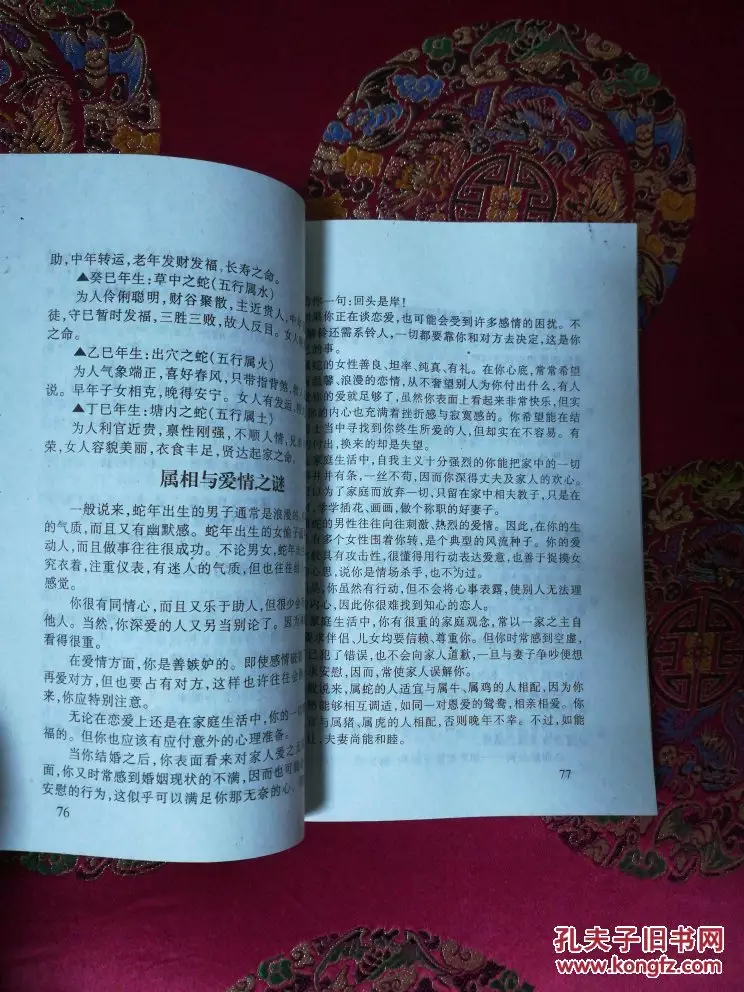 助,中年转运,老年发财发福,长寿之命。
▲癸巳年生:草中之蛇(五行属水)
为人伶俐聪明,财谷聚散,主近贵人,中
徒,守巳暂时发福,三胜三败,故人反目。女人
之命。
▲乙巳年生:出穴之蛇(五行属火)
为人气象端正,喜好春风,只带指背煞,
说。早年子女相克,晚得安宁。女人有发运,
▲丁巳年生:塘内之蛇(五行属土)
为人利官近贵,禀性刚强,不顺人情,兄
荣,女人容貌美丽,衣食丰足,贤达起家之命。
属相与爱情之谜
一般说来,蛇年出生的男子通常是浪漫的,
的气质,而且又有幽默感。蛇年出生的女
动人,而且做事往往很成功。不论男女,蛇年出
究衣着,注重仪表,有迷人的气质,但也往往
感觉。
你很有同情心,而且又乐于助人,但很少
他人。当然,你深爱的人又另当别论了。因为
看得很重。
在爱情方面,你是善嫉妒的。即使感情破
再爱对方,但也要占有对方,这样也许往往会
来,你应特别注意。
无论在恋爱上还是在家庭生活中,你的一切
福的。但你也应该有应付意外的心理准备。
当你结婚之后,你表面看来对家人爱之
面,你又时常感到婚姻现状的不满,因而也可能
安慰的行为,这似乎可以满足你那无奈的心。
76
你一句:回头是岸!
果你正在谈恋爱,也可能会受到许多感情的困扰。不
解铃还需系铃人,一切都要靠你和对方去决定,这是你
的事。
蛇的女性善良、坦率、纯真、有礼。在你心底,常常希望
温馨、浪漫的恋情,从不奢望别人为你付出什么,有人
你的爱就足够了,虽然你表面上看起来非常快乐,但实
你的内心也充满着挫折感与寂寞感的。你希望能在结
当中寻找到你终生所爱的人,但却实在不容易。有
付出,换来的却是失望。
家庭生活中,自我主义十分强烈的你能把家中的一切
井有条,一丝不苟,因而你深得丈夫及家人的欢心。
以为了家庭而放弃一切,只留在家中相夫教子,只是在
学学插花、画画,做个称职的好妻子。
蛇的男性往往向往刺激、热烈的爱情。因此,在你的生
有多个女性围着你转,是个典型的风流种子。你的爱
般具有攻击性,很懂得用行动表达爱意,也善于捉摸女
心思,说你是情场杀手,也不为过。
是,你虽然有行动,但不会将心事表露,使别人无法理
内心,因此你很难找到知心的恋人。
家庭生活中,你有很重的家庭观念,常以一家之主自
要求伴侣、儿女均要信赖、尊重你。但你时常感到空虚,
己犯了错误,也不会向家人道歉,一旦与妻子争吵便想
求安慰,因而,常使家人误解你。
般说来,属蛇的人适宜与属牛、属鸡的人相配,因为你
能够相互调适,如同一对恩爱的鸳鸯,相亲相爱。你
宜与属猪、属虎的人相配,否则晚年不幸。不过,如能
让,夫妻尚能和睦。
77
孔夫子旧书网
www.kongfz.com